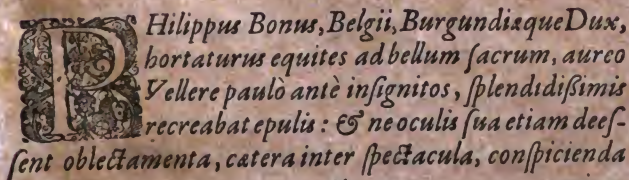 PHilippus Bonus, Belgii, Burgundiæque Dux,
hortaturus equites ad bellum ſacrum, aureo
Vellere paulò antè inſignitos, ſplendidißimis
recreabat epulis : & ne oculis ſua etiam deeſ-
ſent oblectamenta, cætera inter ſpectacula, conſpicienda